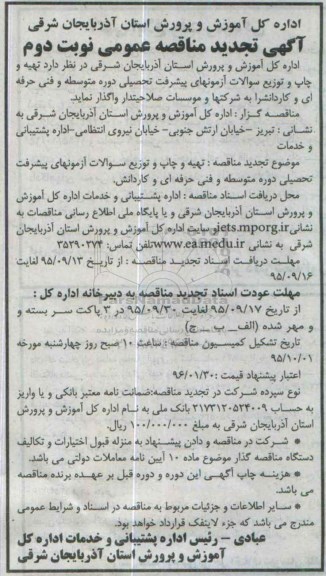 اداره کل آموزش و پرورش استان آذربایجان شرقی
آگهی تجدید مناقصه عمومی نوبت دوم
اداره کل آموزش و پرورش استان آذربایجان شرقی در نظر دارد تهیه و
چاپ و توزیع سوالات آزمونهای پیشرفت تحصیلی دوره متوسطه و فنی حرفه
ای و کاردانشرا به شرکتها و موسسات صلاحیتدار واگذار نماید.
مناقصه گزار : اداره کل آموزش و پرورش استان آذربایجان شرقی به
نشانی : تبریز -خیابان ارتش جنوبی- خیابان نیروی انتظامی-اداره پشتیبانی
و خدمات
موضوع تجدید مناقصه : تهیه و چاپ و توزیع سوالات آزمونهای پیشرفت
تحصیلی دوره متوسطه و فنی حرفه ای و کاردانش.
محل دریافت اسناد مناقصه : اداره پشتیبانی و خدمات اداره کل آموزش
و پرورش استان آذربایجان شرقی و یا پایگاه ملی اطلاع رسانی مناقصات به
نشانی iets.mporg.ir وسایت اداره کل آموزش و پرورش استان آذربایجان
شرقی به نشانی www.ea.medu.ir تلفن تماس: ۳۵۲۹۰۳۷۴
مهلت دریافت اسناد تجدید مناقصه : از تاریخ ۹۵/۰۹/۱۳ لغایت
۹۵/۰۹/۱۶
مهلت عودت اسناد تجدید مناقصه به دبیرخانه اداره کل :
از تاریخ ۹۵/۰۹/۱۷ لغایت ۹۵/۰۹/۳۰ در ۳ پاکت سر بسته و
و مهر شده (الف_ ب_ ج)
تاریخ تشکیل کمیسیون مناقصه : ساعت ۱۰ صبح روز چهارشنبه مورخه
۹۵/۱۰/۰۱
اعتبار پیشنهاد قیمت :۹۶/۰۱/۳۰
نوع سپرده شرکت در تجدید مناقصه:ضمانت نامه معتبر بانکی و یا واریز
به حساب ۲۱۷۳۱۲۰۵۲۴۰۰۹ بانک ملی به نام اداره کل آموزش و پرورش
استان آذربایجان شرقی به مبلغ ۱۰۰/۰۰۰/۰۰۰ ریال.
● شرکت در مناقصه و دادن پیشنهاد به منزله قبول اختیارات و تکالیف
دستگاه مناقصه گذار موضوع ماده ۱۰ آیین نامه معاملات دولتی می باشد.
● هزینه چاپ آگهی این دوره و دوره قبل بر عهده برنده مناقصه
می باشد.
● سایر اطلاعات و جزئیات مربوط به مناقصه در اسناد و شرایط عمومی
مندرج می باشد که جزء لاینفک قرارداد خواهد بود.
عبادی - رئیس اداره پشتیبانی و خدمات اداره کل
آموزش و پرورش استان آذربایجان شرقی